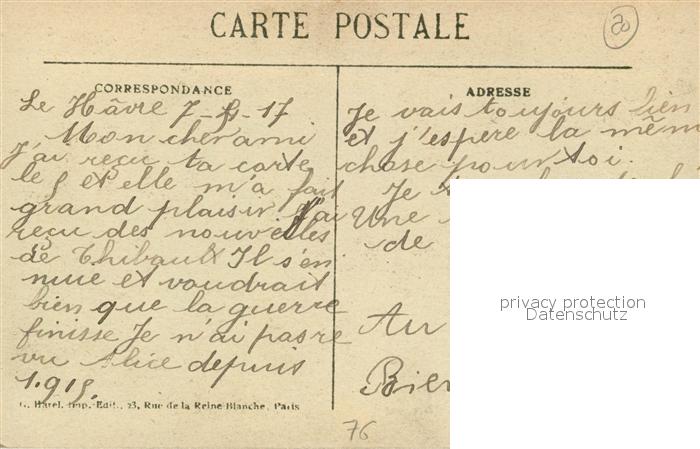 CARTE POSTALE
20
CORRESPONDANCE
Le Hâvre 7-8-17
Mon cher ami
J'ai reçu ta carte
le 5 et elle m'a fait
grand plaisir J'ai
reçu des nouvelles
de Thibault Il s'en
nuie et voudrait
bien que la guerre
finisse Je n'ai pas re
vu Alice depuis
1.915.
G. Harel, Imp.-Edit., 23, Rue de la Reine-Blanche, Paris
ADRESSE
Je vais toujours bien
et j'espère la mêm
chose pour toi.
Je
Une
de
Au
Bien
76
privacy protection
Datenschutz